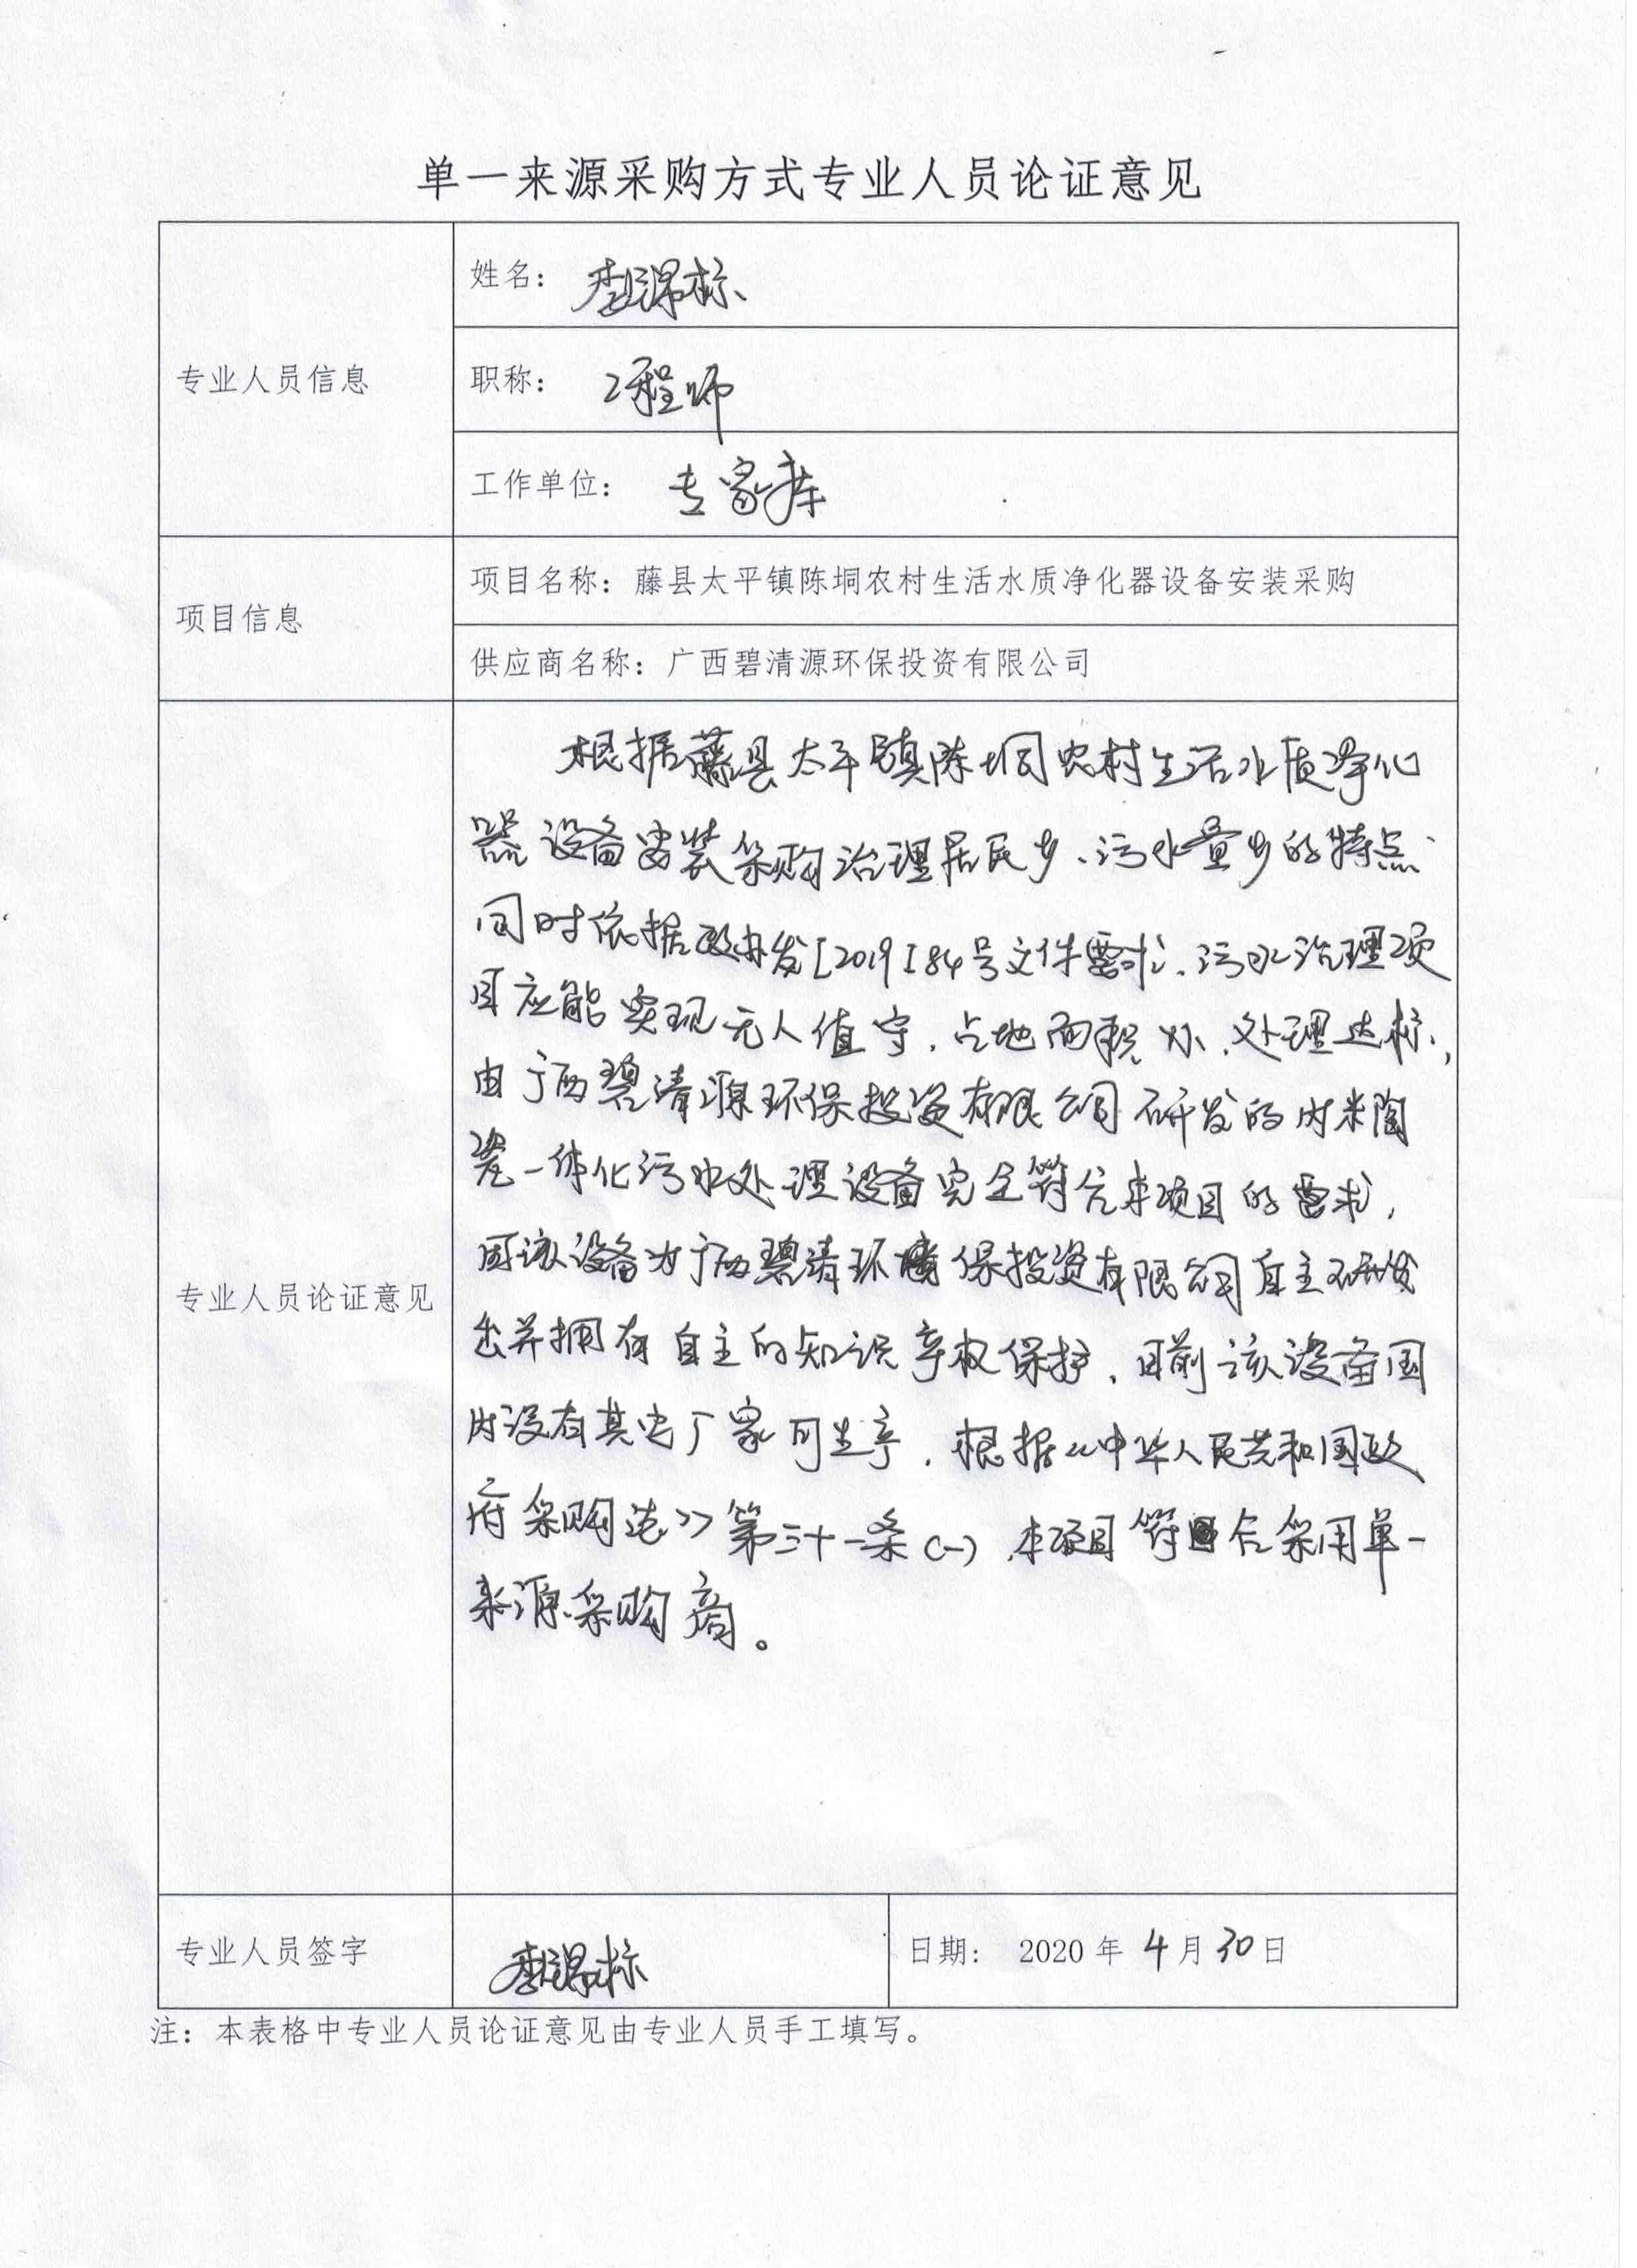 单一来源采购方式专业人员论证意见
专业人员信息
姓名：李锡标
职称：工程师
工作单位：专家库
项目信息
项目名称：藤县太平镇陈垌农村生活水质净化器设备安装采购
供应商名称：广西碧清源环保投资有限公司
专业人员论证意见
根据藤县太平镇陈垌农村生活水质净化
器设备安装采购治理居民少、污水量少的特点
同时依据政办发[2019]84号文件要求、污水治理项
目应能实现无人值守、占地面积小、处理达标，
由广西碧清源环保投资有限公司研发的内米陶
瓷一体化污水处理设备完全符合本项目的需求，
因该设备为广西碧清环保投资有限公司自主研发
出并拥有自主的知识产权保护、目前该设备国
内没有其它厂家可生产、根据《中华人民共和国政
府采购法》第三十一条(一)、本项目符合采用单一
来源采购商。
专业人员签字
李锡标
日期： 2020年4月30日
注：本表格中专业人员论证意见由专业人员手工填写。